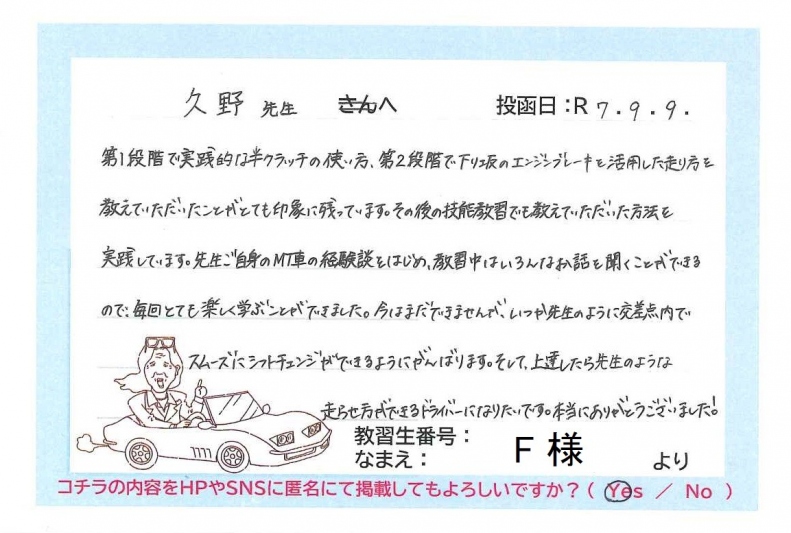 久野 先生 さんへ 投函日:R7.9.9.
第1段階で実践的な半クラッチの使い方、第2段階で下り坂のエンジンブレーキを活用した走り方を
教えていただいたことがとても印象に残っています。その後の技能教習でも教えていただいた方法を
実践しています。先生ご自身のMT車の経験談をはじめ、教習中はいろんなお話を聞くことができる
ので、毎回とても楽しく学ぶことができました。今はまだできませんが、いつか先生のように交差点内で
スムーズにシフトチェンジができるようにがんばります。そして、上達したら先生のような
走らせ方ができるドライバーになりたいです。本当にありがとうございました!
教習生番号:
なまえ: F 様 より
コチラの内容をHPやSNSに匿名にて掲載してもよろしいですか?( Yes / No )